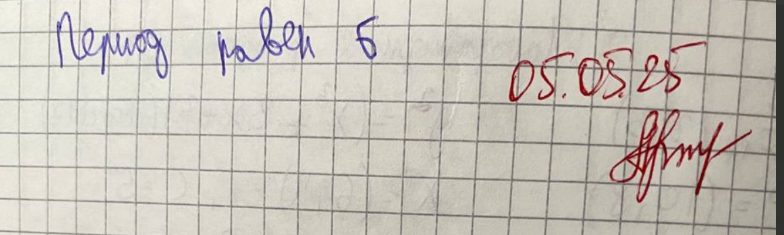 Период равен 6
05.05.25